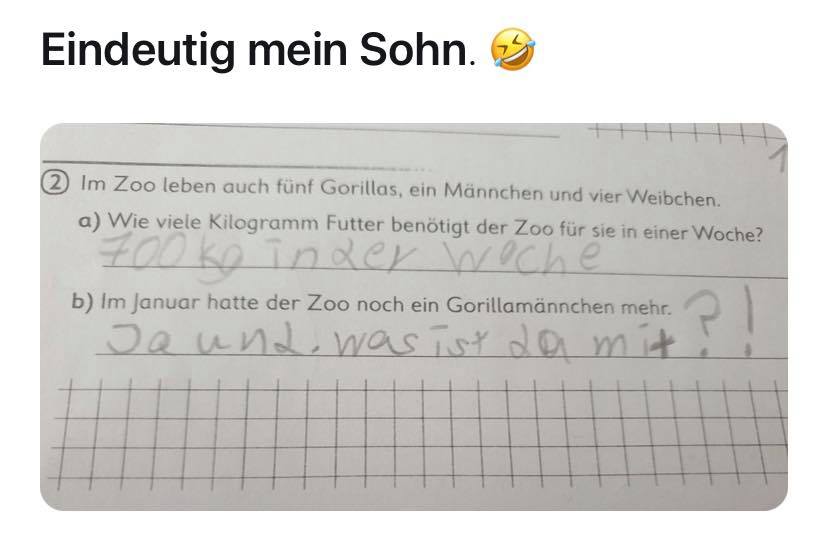 Eindeutig mein Sohn. 🤣
② Im Zoo leben auch fünf Gorillas, ein Männchen und vier Weibchen.
a) Wie viele Kilogramm Futter benötigt der Zoo für sie in einer Woche?
700 kg in der Woche
b) Im Januar hatte der Zoo noch ein Gorillamännchen mehr.
Ja und, was ist da mit?!